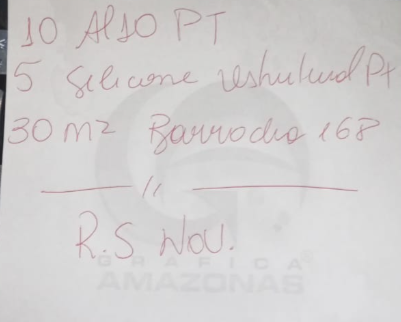 10 Al10 PT
5 Silicone estrutural Pt
30 m2 Barrocha 168
R.S Nov.
GRÁFICA
AMAZONAS